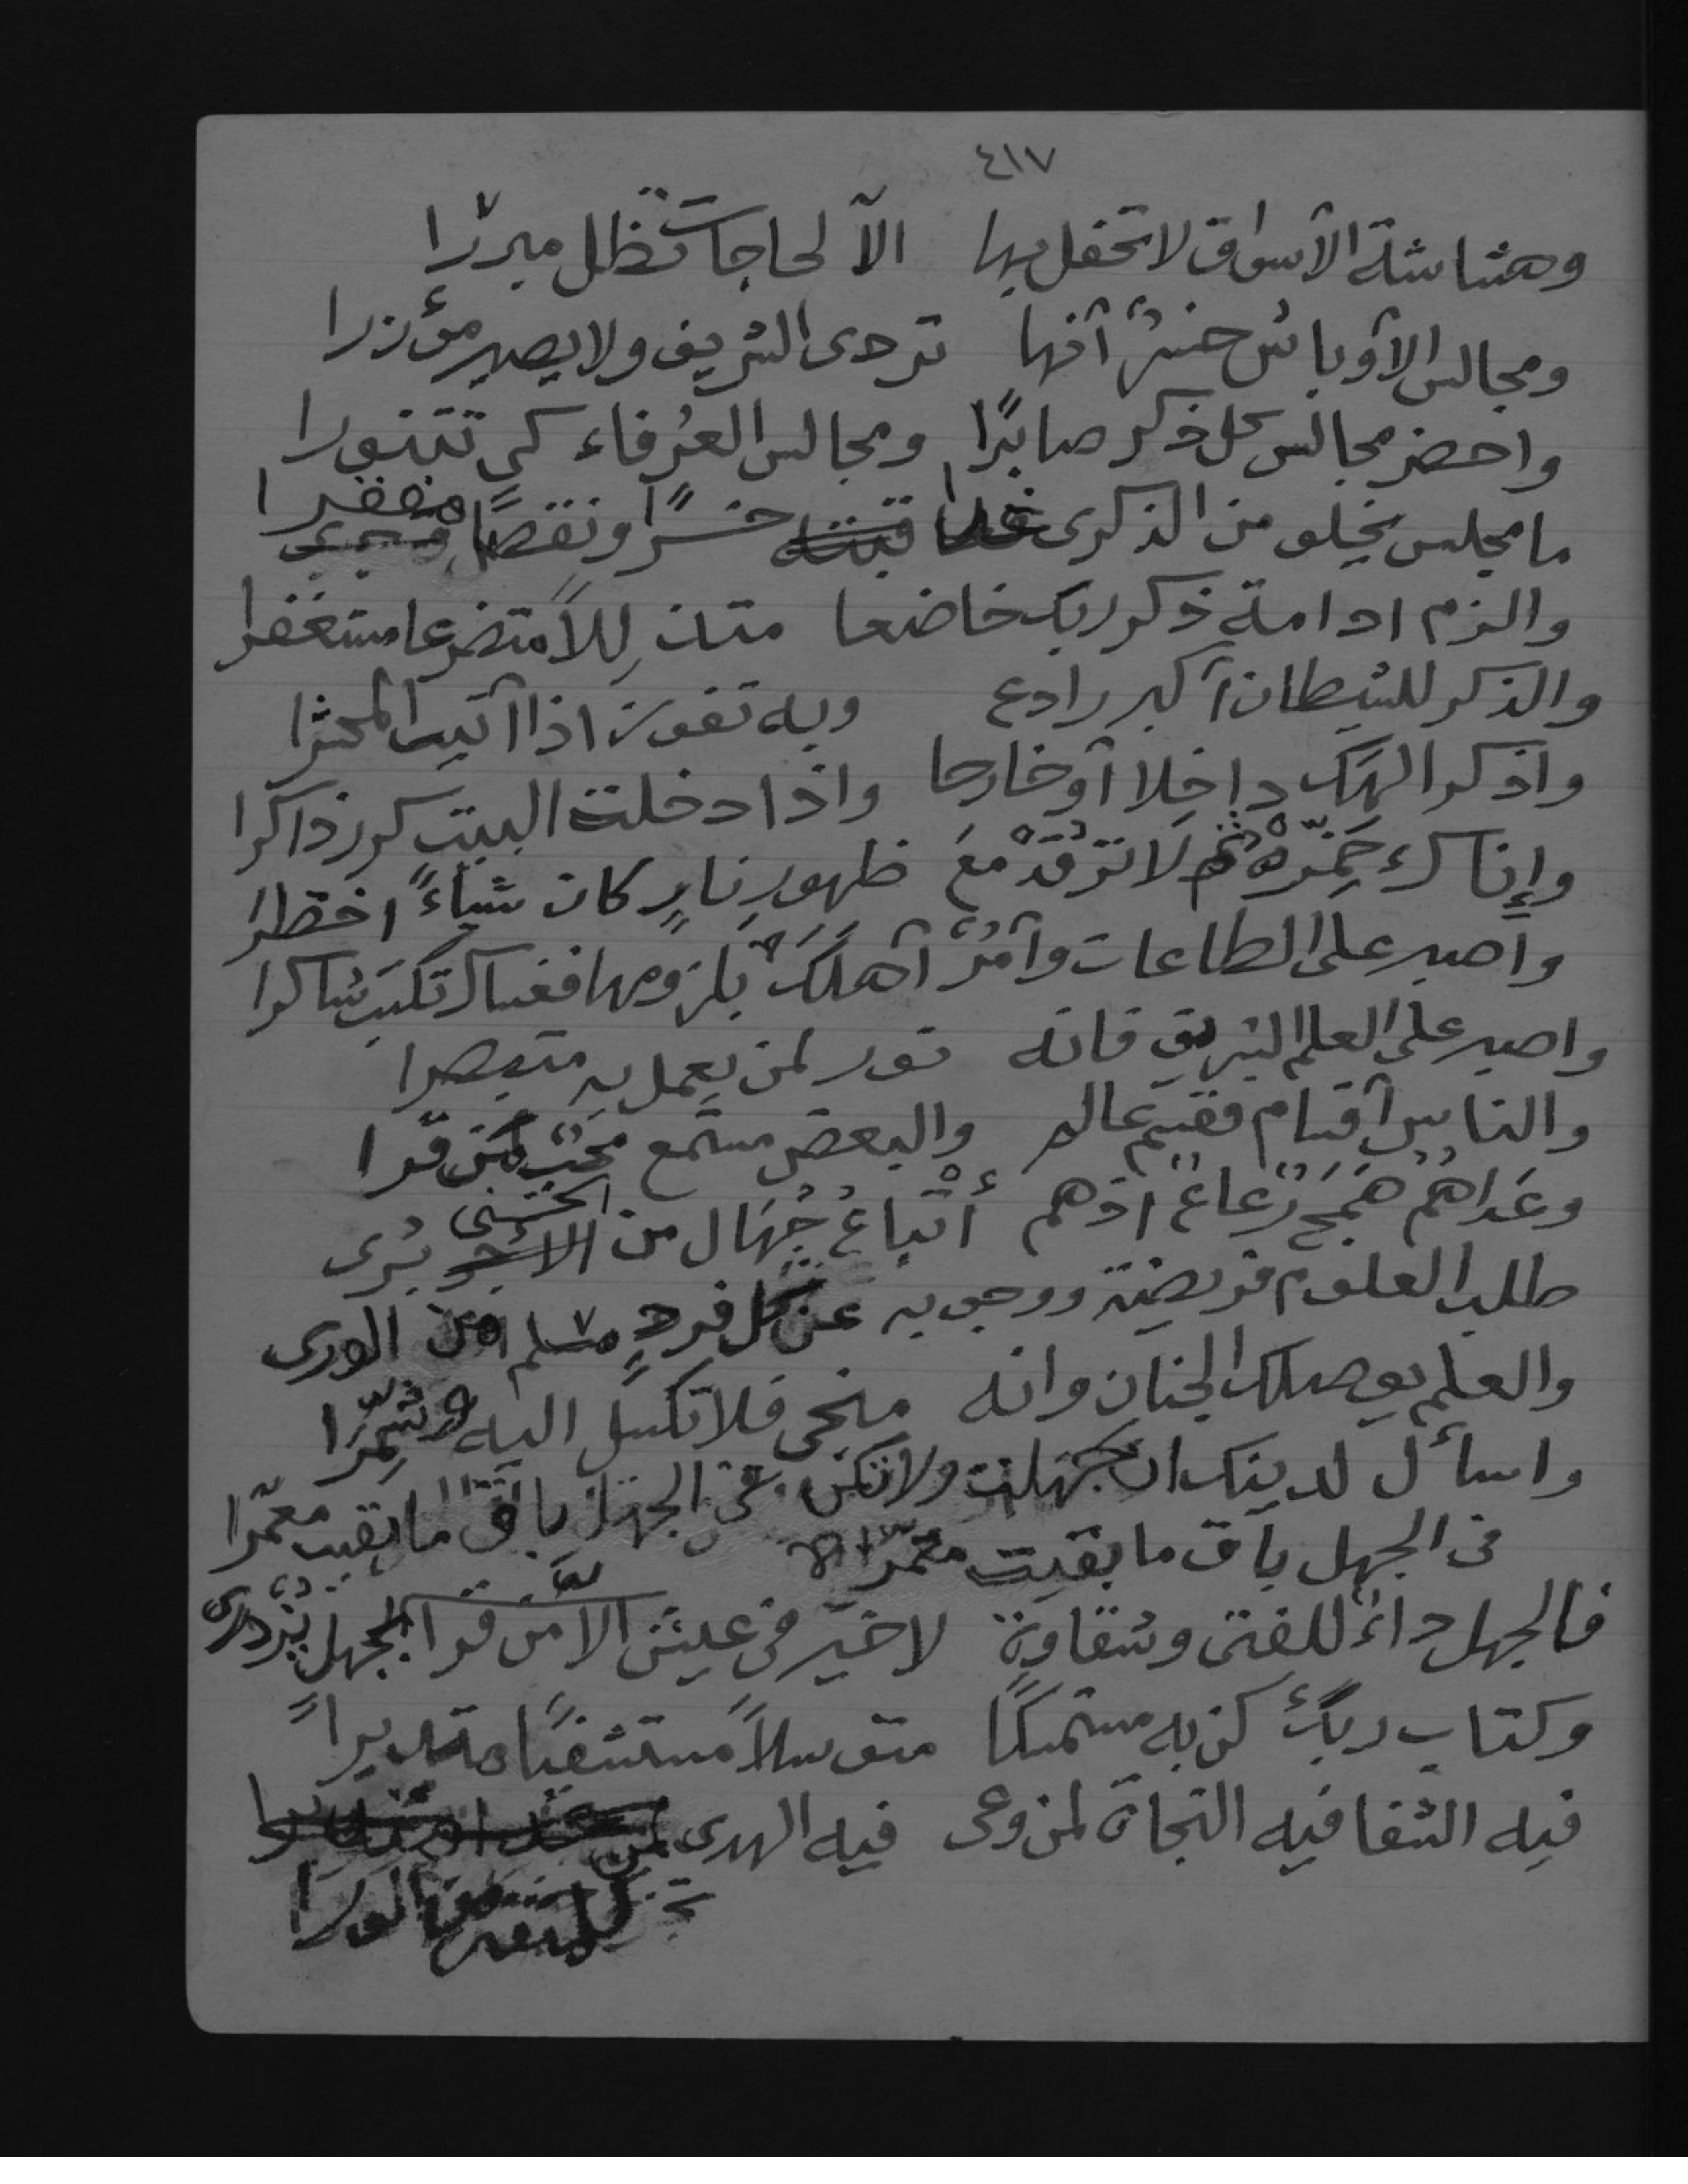 ٤١٧
وهشاشة الأسواق لا تحفل بها الا لحاجات تظل مبررا
ومجالس الأوباش حشر آنها تردى الشريف ولا يصير مؤزرا
واحضر مجالس كل ذكر صابرًا ومجالس العُرفاء كي تتنورا
ما مجلس يخلو من الذكرى غدا خسرًا ونقصًا
والزم ادامة ذكر ربك خاضعا متذللاً متضرعا مستغفرا
والذكر للشيطان أكبر رادع وبه تفوز اذا أتيت المحشرا
واذكر الهك داخلا أو خارجا واذا دخلت البيت كرر ذاكرا
وإناك خمّره لا ترقد مع ظهور نارٍ كان شيأً اخطرا
واصبر على الطاعات وأمر أهلك بلزومها فعساك تكتب شاكرا
واصبر على العلم الشريف فانه نور لمن يعمل به متبصرا
والناس أقسام فقسم عالم والبعض مستمع محب من قرا
وعداهُم هَمَج رعاع اذ هم أتباع جُهال من الحسنى بُرى
طلب العلوم فريضة ووجوبه عن كل فردٍ مسلم من الورى
والعلم يوصلك الجنان وانه منجى فلا تكسل اليه وشمّرا
واسأل لدينك ان جهلت ولا تكن في الجهل باق ما بقيت معمّرا
في الجهل باق ما بقيت معمّرا
فالجهل داء للفتى وشقاوة لا خير في عيش الأمَّن قرا الجهل يزدرى
وكتاب ربك كن به مستمسكا متوسلاً مستشفيًا متدبراً
فيه الشفا فيه النجاة لمن وعى فيه الهدى لمن